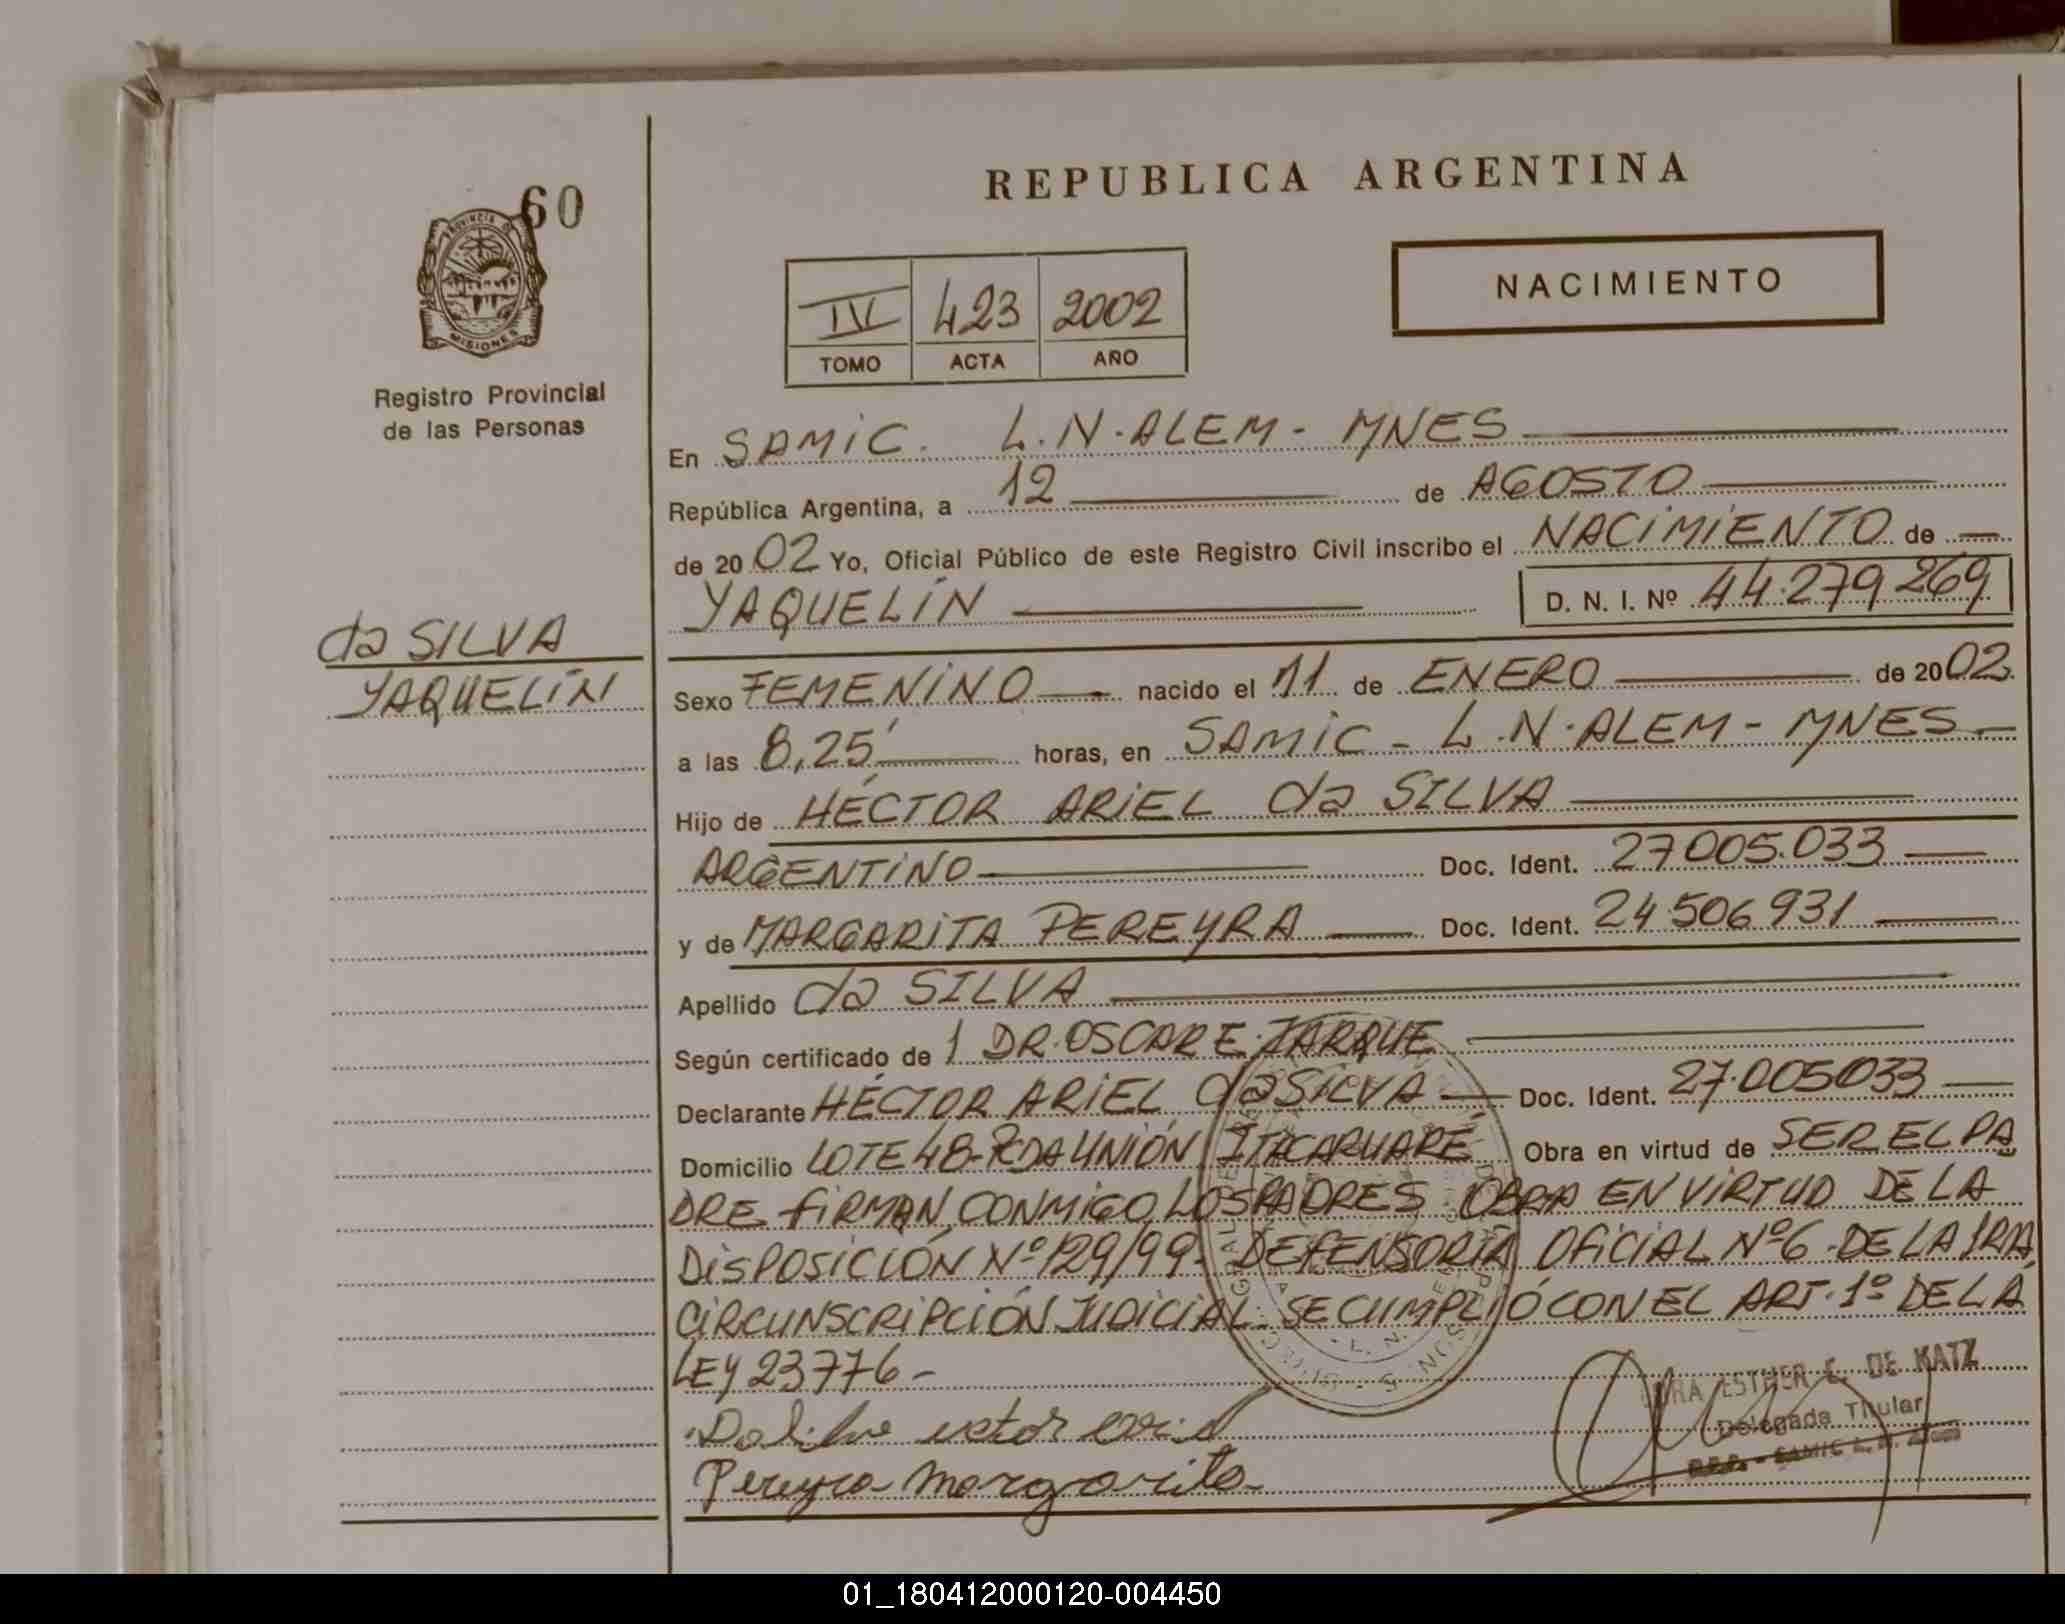 60
PROVINCIA DE
MISIONES
Registro Provincial
de las Personas
da SILVA
YAQUELÍN
REPUBLICA ARGENTINA
NACIMIENTO
IV 423 2002
TOMO ACTA AÑO
En SAMIC. L.N.ALEM - MNES
República Argentina, a 12 de AGOSTO
de 2002 Yo, Oficial Público de este Registro Civil inscribo el NACIMIENTO de
YAQUELÍN D. N. I. Nº 44.279.269
Sexo FEMENINO nacido el 11 de ENERO de 2002.
a las 8,25' horas, en SAMIC - L.N.ALEM - MNES
Hijo de HÉCTOR ARIEL da SILVA
ARGENTINO Doc. Ident. 27.005.033
y de MARGARITA PEREYRA Doc. Ident. 24.506.931
Apellido da SILVA
Según certificado de 1 DR. OSCAR E. JARQUE
Declarante HÉCTOR ARIEL da SILVA Doc. Ident. 27.005033
Domicilio LOTE 48 - UNIÓN ITACARUARÉ Obra en virtud de SER EL PA
DRE FIRMAN CONMIGO LOS PADRES OBRA EN VIRTUD DE LA
DISPOSICIÓN Nº 129/99 - DEFENSORÍA OFICIAL Nº 6 - DE LA 1RA
CIRCUNSCRIPCIÓN JUDICIAL. SE CUMPLIÓ CON EL ART. 1º DE LA
LEY 23776 -
Pereyra Margarita
ESTHER E. DE KATZ
Delegada Titular
SAMIC L. N.
01_180412000120-004450